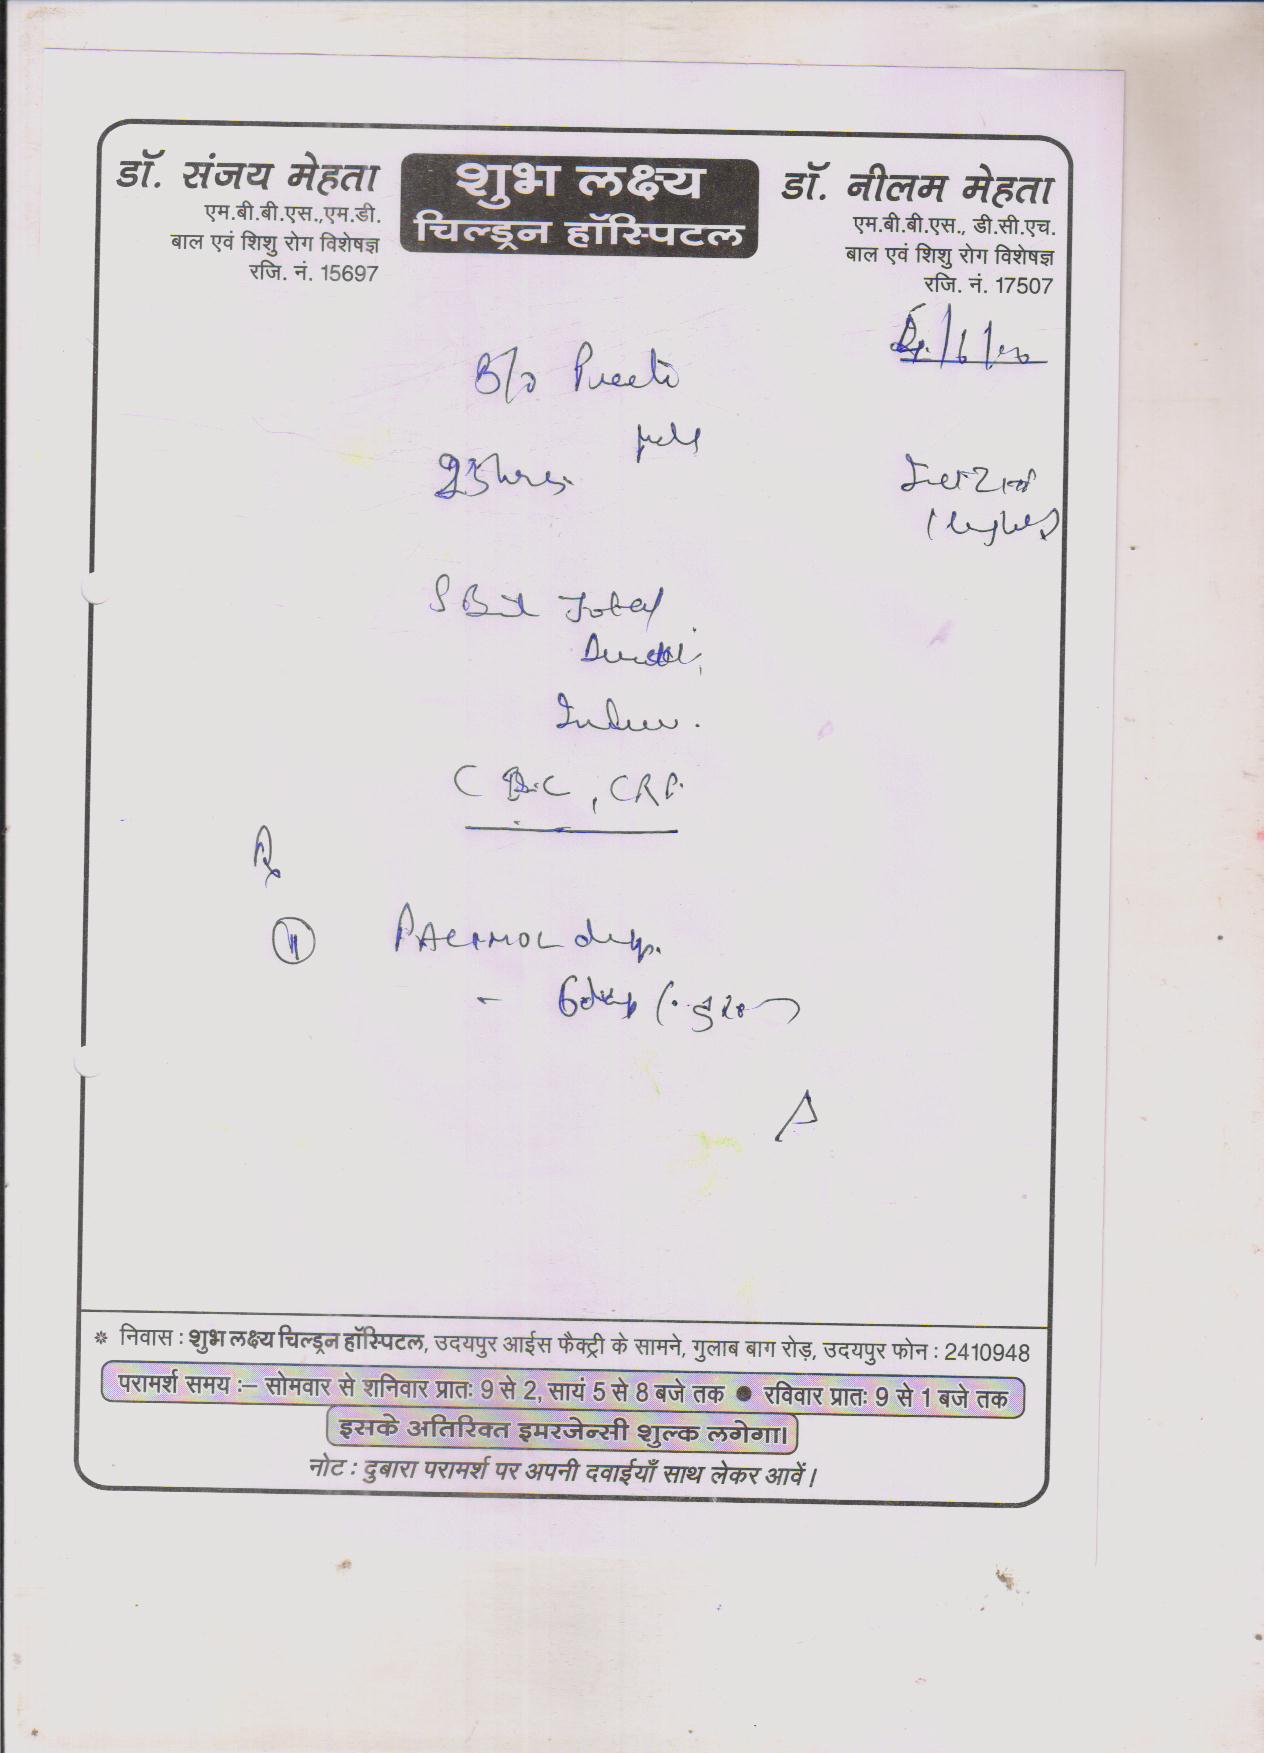 डॉ. संजय मेहता
एम.बी.बी.एस.,एम.डी.
बाल एवं शिशु रोग विशेषज्ञ
रजि. नं. 15697
शुभ लक्ष्य
चिल्ड्रन हॉस्पिटल
डॉ. नीलम मेहता
एम.बी.बी.एस., डी.सी.एच.
बाल एवं शिशु रोग विशेषज्ञ
रजि. नं. 17507
B/o Preeti
S Bil Total
CBC, CRP
PACIMOL
निवास : शुभ लक्ष्य चिल्ड्रन हॉस्पिटल, उदयपुर आईस फैक्ट्री के सामने, गुलाब बाग रोड़, उदयपुर फोन : 2410948
परामर्श समय :– सोमवार से शनिवार प्रातः 9 से 2, सायं 5 से 8 बजे तक ● रविवार प्रातः 9 से 1 बजे तक
इसके अतिरिक्त इमरजेन्सी शुल्क लगेगा।
नोट : दुबारा परामर्श पर अपनी दवाईयाँ साथ लेकर आवें।